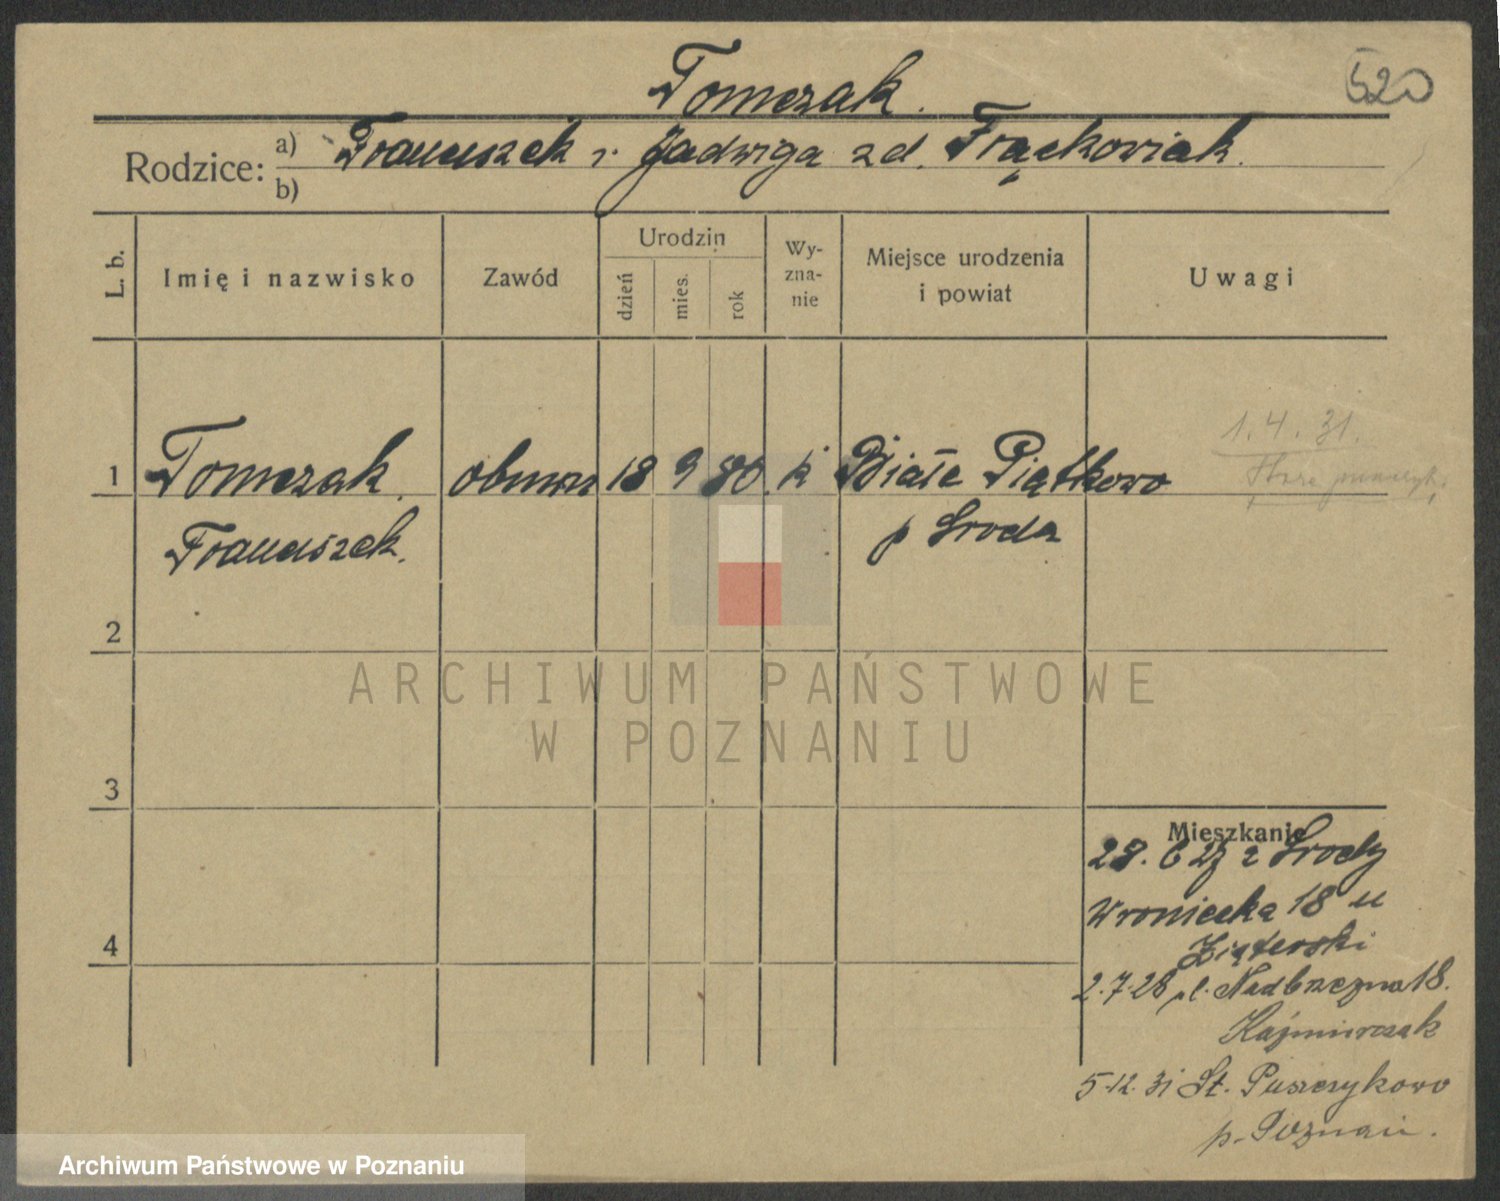 520
Tomczak.
Rodzice: a) Franciszek i Jadwiga zd. Frąckowiak.
b)
L. b.
Imię i nazwisko
Zawód
Urodzin
dzień
mies.
rok
Wy-
zna-
nie
Miejsce urodzenia
i powiat
Uwagi
1.4.31.
1 Tomczak. 18 9 80. k Białe Piątkowo
Franciszek. p Środa
2
ARCHIWUM PAŃSTWOWE
W POZNANIU
3
Mieszkanie
z Środy
Wroniecka 18 u
4
2.7.28 Nadbrzeżna 18.
Kaźmierczak
5.12.31 St. Puszczykowo
p. Poznań.
Archiwum Państwowe w Poznaniu